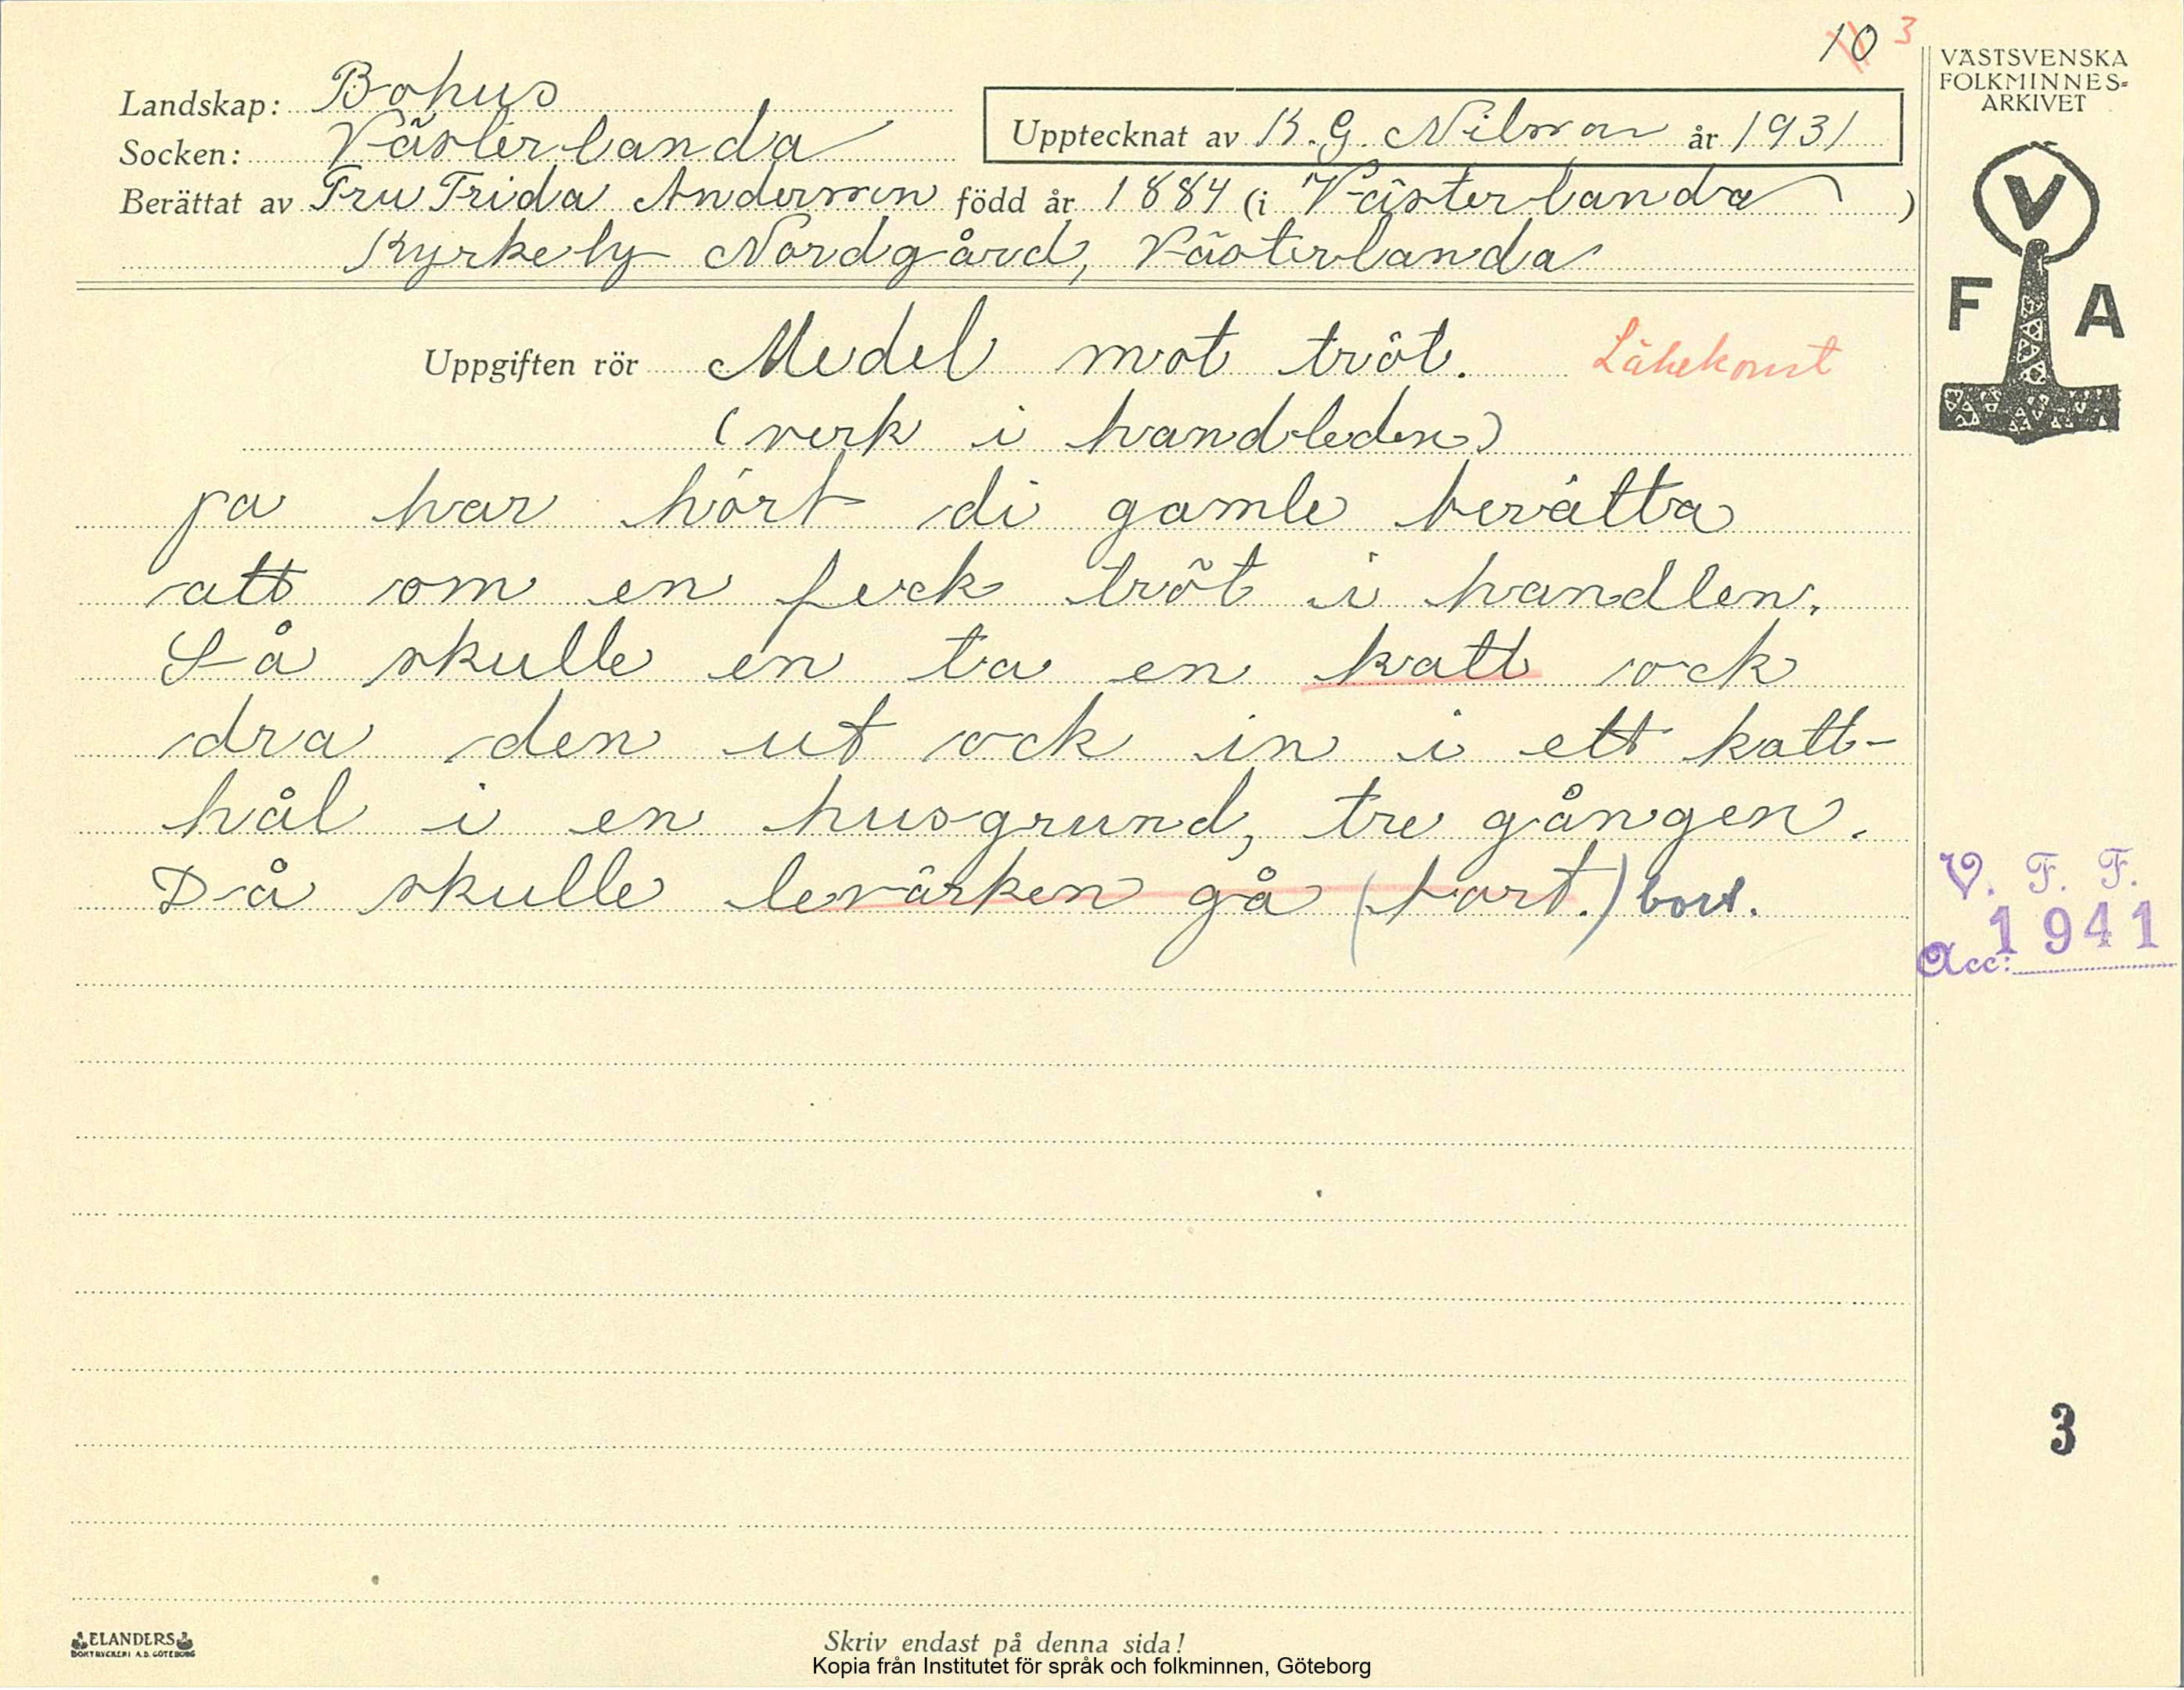 10 3
VÄSTSVENSKA
FOLKMINNES-
ARKIVET
Landskap: Bohus
Socken: Västerlanda
Upptecknat av K. G. Nilsson år 1931
Berättat av Fru Frida Andersson född år 1884 (i Västerlanda)
Kyrkeby Nordgård, Västerlanda
V
F A
Uppgiften rör Medel mot tröt. Läkekonst
(verk i handleden)
ja har hört di gamle berätta
att om en feck tröt i handlen.
Så skulle en ta en katt ock
dra den ut ock in i ett katt-
hål i en husgrund, tre gången.
Då skulle levärken gå (fort.) bort.
V. F. F.
1941
Acc:
3
ELANDERS
BOKTRYCKERI A.B. GÖTEBORG
Skriv endast på denna sida!
Kopia från Institutet för språk och folkminnen, Göteborg